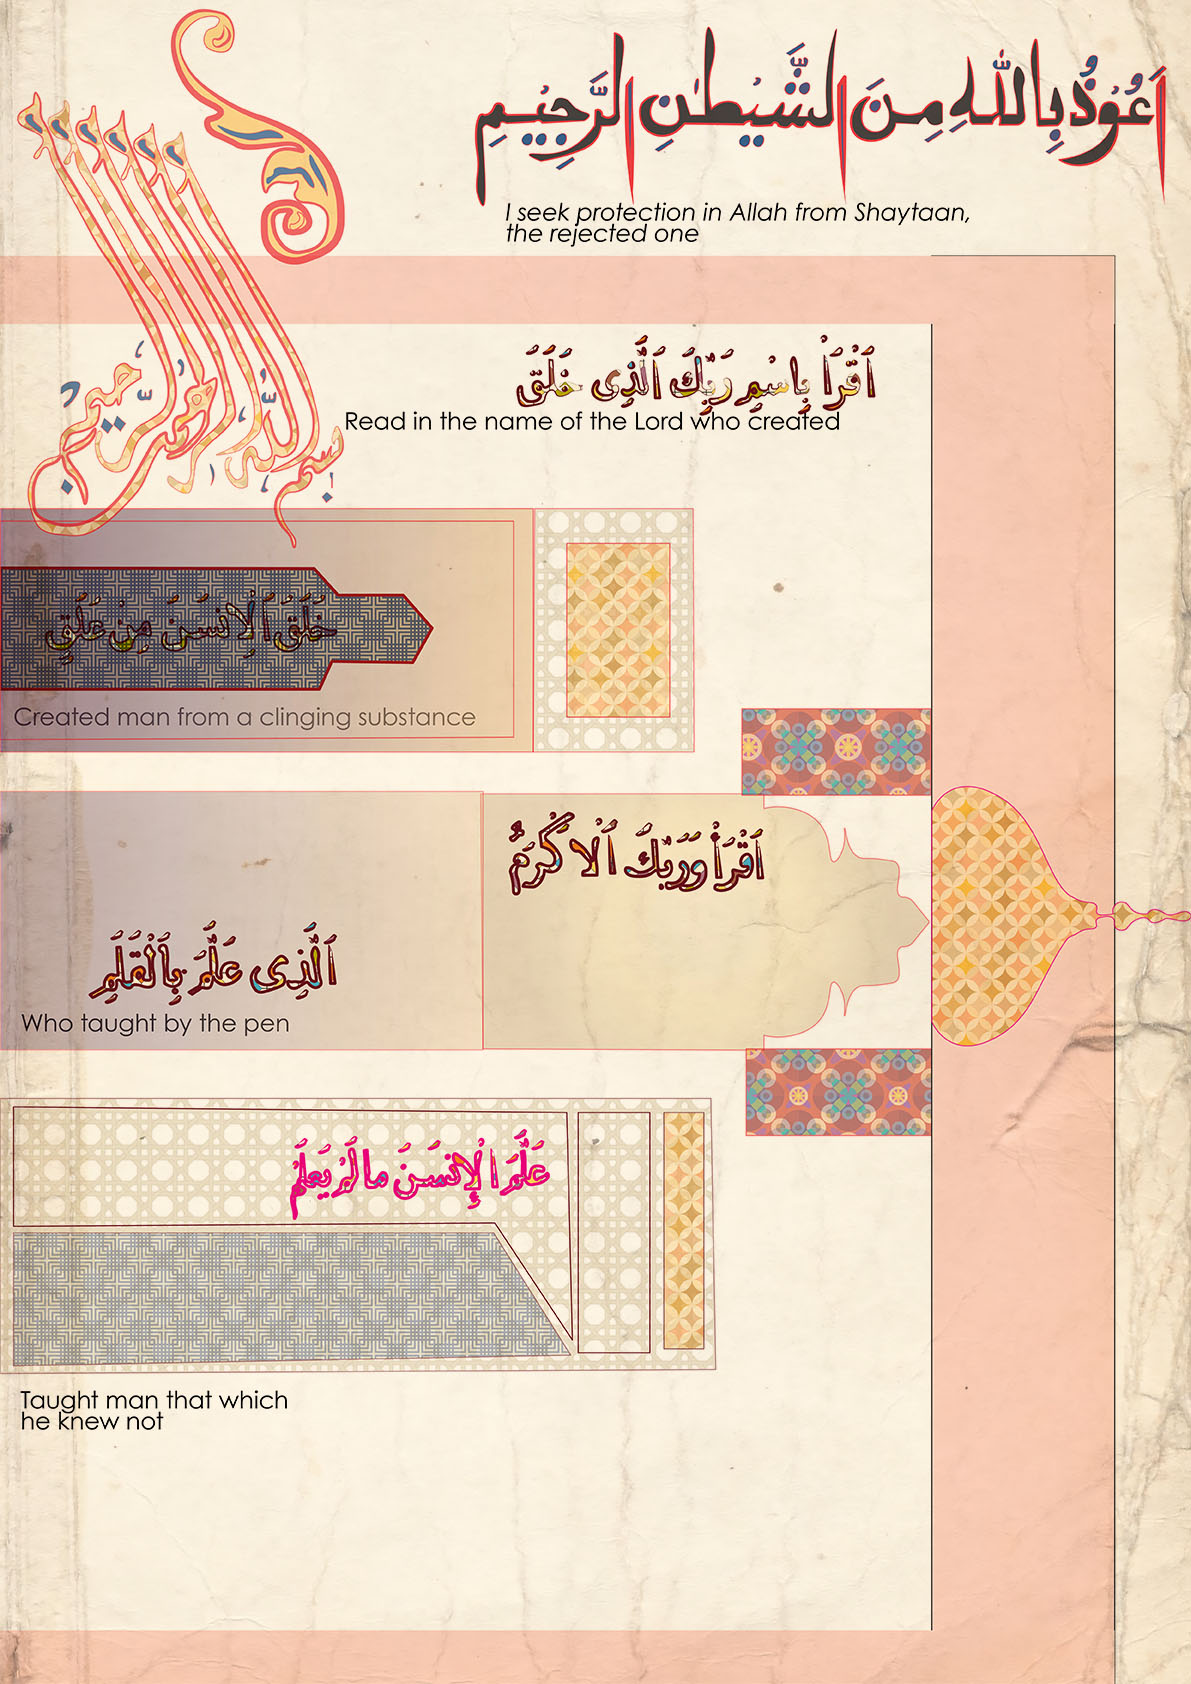 اَعُوْذُ بِاللّٰهِ مِنَ الشَّيْطٰنِ الرَّجِيْمِ
I seek protection in Allah from Shaytaan,
the rejected one
بسم الله الرحمن الرحيم
اَقْرَاْ بِاسْمِ رَبِّكَ اَلَّذِى خَلَقَ
Read in the name of the Lord who created
خَلَقَ اَلْاِنسَنَ مِنْ عَلَقٍ
Created man from a clinging substance
اَقْرَاْ وَرَبُّكَ اَلْاَكْرَمُ
اَلَّذِى عَلَّمَ بِالْقَلَمِ
Who taught by the pen
عَلَّمَ الْإِنسَنَ مَا لَمْ يَعْلَمْ
Taught man that which
he knew not